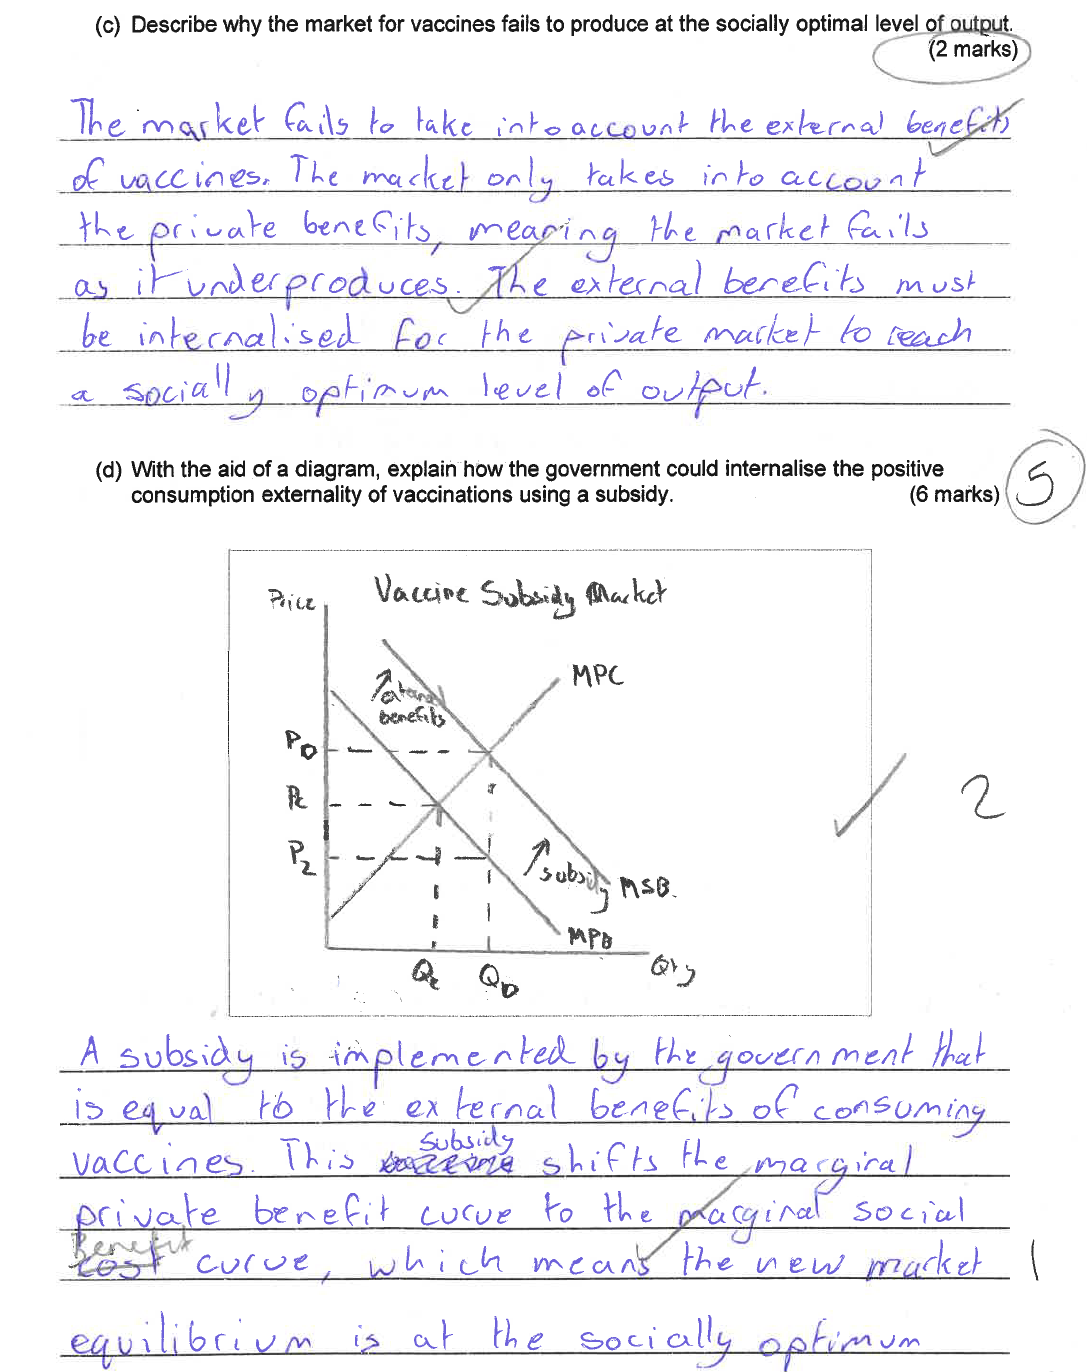 (c) Describe why the market for vaccines fails to produce at the socially optimal level of output.
(2 marks)
The market fails to take into account the external benefits
of vaccines. The market only takes into account
the private benefits, meaning the market fails
as it underproduces. The external benefits must
be internalised for the private market to reach
a socially optimum level of output.
(d) With the aid of a diagram, explain how the government could internalise the positive
consumption externality of vaccinations using a subsidy.
(6 marks)
5
Vaccine Subsidy Market
Price
MPC
benefits
PD
P2
subsidy
MSB.
MPB
QD
Qty
2
A subsidy is implemented by the government that
is equal to the external benefits of consuming
vaccines. This subsidy shifts the marginal
private benefit curve to the marginal social
Benefit
cost curve, which means the new market
1
equilibrium is at the socially optimum